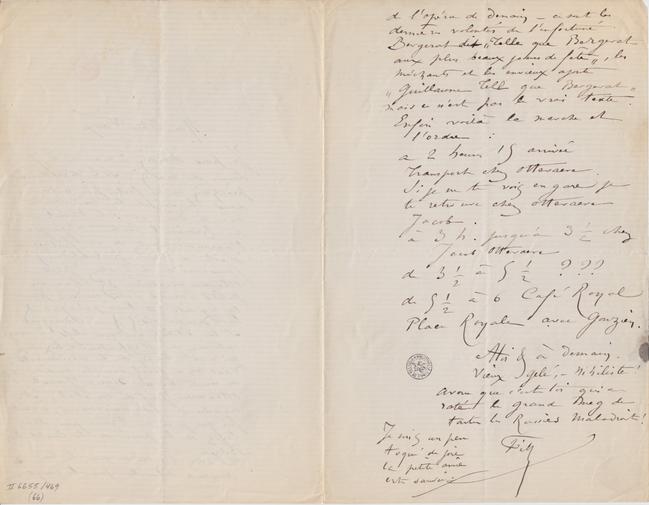 de l'opéra de demain – ce sont les
dernières volontés de l'infortuné
Bergerat dit "Telle que Bergerat
aux plus beaux jours de fête", les
méchants et les envieux ajout
"Guillaume Tell que Bergerat"
mais ce n'est pas le vrai texte.
Enfin voilà la marche et
l'ordre :
a 2 heures 15 arrivée
Transport chez Ottevaere.
Si je ne te vois en gare je
te retrouve chez Ottevaere
Jacob.
à 3 h. jusqu'à 3 1/2 chez
Jacob Ottevaere
de 3 1/2 à 5 1/2 ???
de 5 1/2 à 6 Café Royal
Place Royale avec Gouzien.
à demain.
Vieux gelé, – Nihiliste !
avoue que c'est toi qui a
raté le grand Bueg de
tous les Russies Maladroit !
Je suis un peu
toqué de joie
la petite amie
est sauvée
II 6655/469
(66)